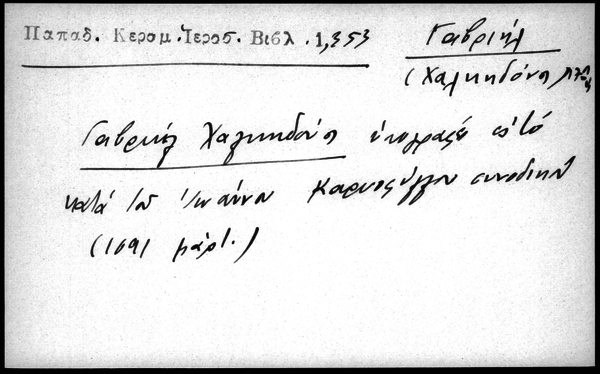 Παπαδ. Κεραμ. Ἱεροσ. Βιβλ. 1,353
Γαβριήλ
(Χαλκηδόνος
Γαβριήλ Χαλκηδόνος ὑπογράφει εἰς τό
κατά τοῦ Ἰωάννου Καρυοφύλλου συνοδικόν
(1691 μάρτ.)